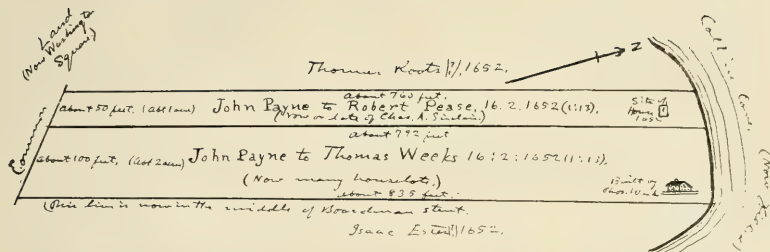 Land
(Now Washington
Square)
Common
Thomas Roots (?), 1652.
N
Collins Cove,
(Now
About 760 feet.
About 50 feet. (Abt 1 acre) John Payne to Robert Pease. 16. 2. 1652 (1:15).
(Now or late of Chas. A. Sinclair.)
Site of
House
1652
About 792 feet
About 100 feet, (Abt 2 acres) John Payne to Thomas Weeks 16:2:1652 (1:15),
(Now many houselots.)
Built by
Thos. Weeks
About 835 feet.
(This line is now in the middle of Boardman street.
Isaac 1652.